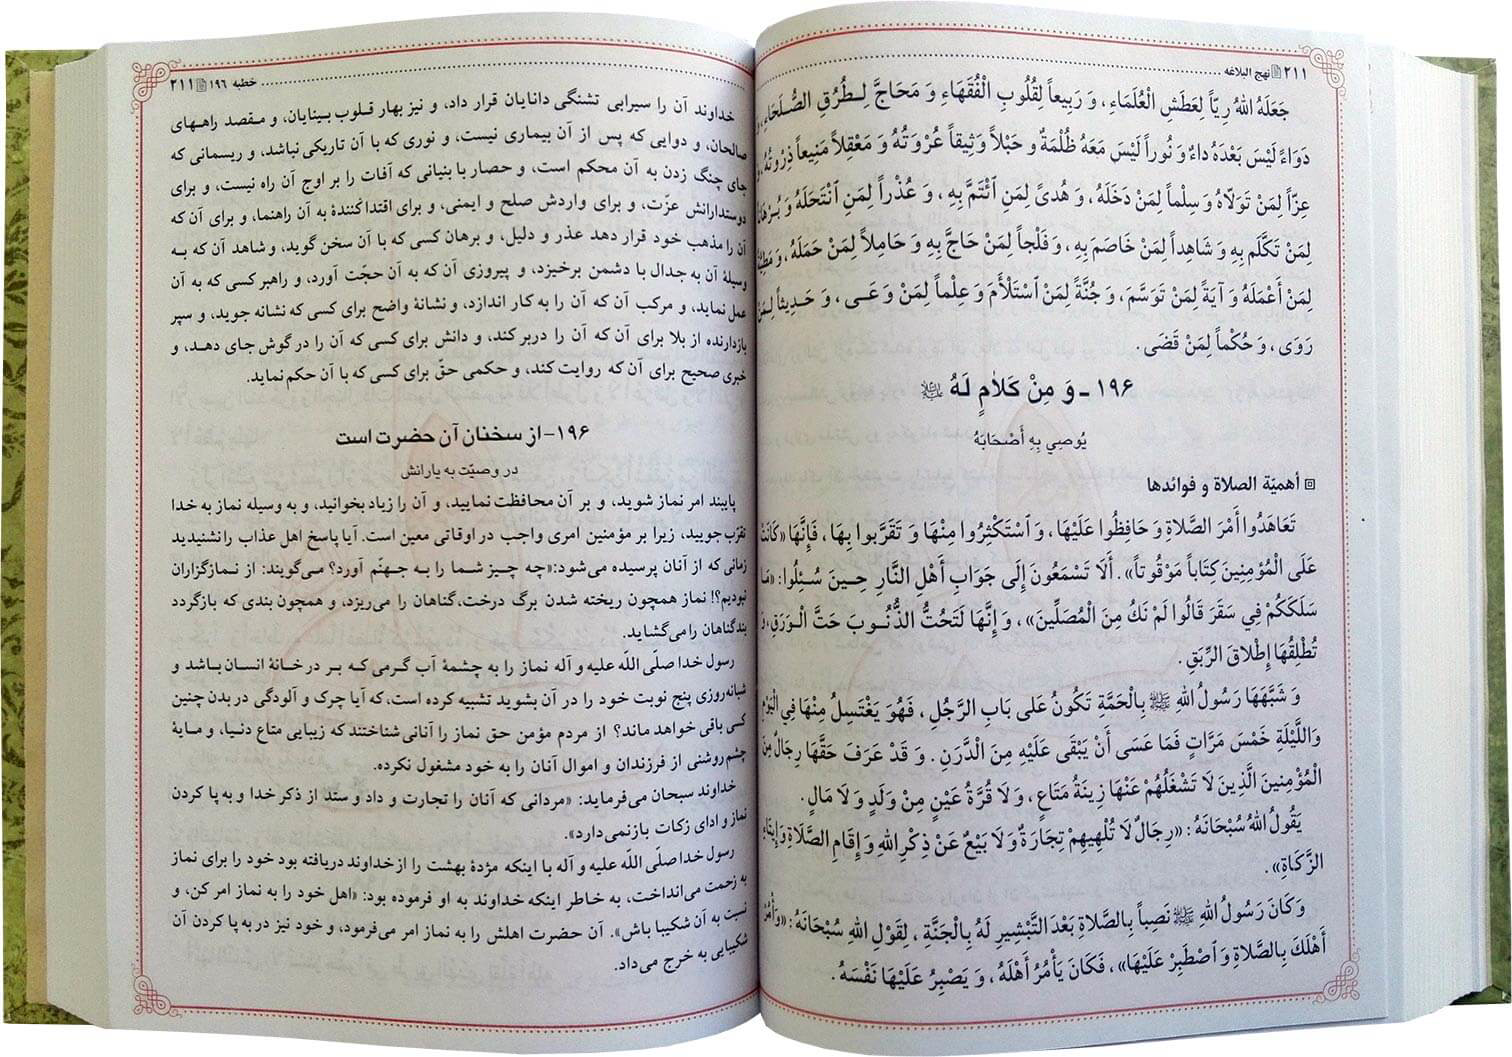 ۲۱۱ نهج البلاغه
جَعَلَهُ اللهُ رِيّاً لِعَطَشِ الْعُلَمَاءِ ، وَ رَبِيعاً لِقُلُوبِ الْفُقَهَاءِ وَ مَحَاجَّ لِطُرُقِ الصُّلَحَاءِ ، وَ
دَوَاءً لَيْسَ بَعْدَهُ دَاءٌ وَ نُوراً لَيْسَ مَعَهُ ظُلْمَةٌ وَ حَبْلاً وَثِيقاً عُرْوَتُهُ وَ مَعْقِلاً مَنِيعاً ذِرْوَتُهُ، وَ
عِزّاً لِمَنْ تَوَلّاهُ وَ سِلْماً لِمَنْ دَخَلَهُ ، وَ هُدىً لِمَنِ ٱئْتَمَّ بِهِ ، وَ عُذْراً لِمَنِ ٱنْتَحَلَهُ وَ بُرْهَاناً
لِمَنْ تَكَلَّمَ بِهِ وَ شَاهِداً لِمَنْ خَاصَمَ بِهِ ، وَ فَلْجاً لِمَنْ حَاجَّ بِهِ وَ حَامِلاً لِمَنْ حَمَلَهُ ، وَ مَطِيَّةً
لِمَنْ أَعْمَلَهُ وَ آيَةً لِمَنْ تَوَسَّمَ ، وَ جُنَّةً لِمَنْ ٱسْتَلْأَمَ وَ عِلْماً لِمَنْ وَعَى ، وَ حَدِيثاً لِمَنْ
رَوَى ، وَ حُكْماً لِمَنْ قَضَى .
۱۹۶ ـ وَ مِنْ كَلاٰمٍ لَهُ
يُوصِي بِهِ أَصْحَابَهُ
أهميّة الصلاة و فوائدها
تَعَاهَدُوا أَمْرَ الصَّلَاةِ وَ حَافِظُوا عَلَيْهَا ، وَ ٱسْتَكْثِرُوا مِنْهَا وَ تَقَرَّبُوا بِهَا ، فَإِنَّهَا «كَانَتْ
عَلَى الْمُؤْمِنِينَ كِتَاباً مَوْقُوتاً» . أَلَا تَسْمَعُونَ إِلَى جَوَابِ أَهْلِ النَّارِ حِينَ سُئِلُوا: «مَا
سَلَكَكُمْ فِي سَقَرَ قَالُوا لَمْ نَكُ مِنَ الْمُصَلِّينَ» ، وَ إِنَّهَا لَتَحُتُّ الذُّنُوبَ حَتَّ الْوَرَقِ ، وَ
تُطْلِقُهَا إِطْلَاقَ الرِّبَقِ .
وَ شَبَّهَهَا رَسُولُ اللهِ ﷺ بِالْحَمَّةِ تَكُونُ عَلَى بَابِ الرَّجُلِ ، فَهُوَ يَغْتَسِلُ مِنْهَا فِي الْيَوْمِ
وَاللَّيْلَةِ خَمْسَ مَرَّاتٍ فَمَا عَسَى أَنْ يَبْقَى عَلَيْهِ مِنَ الدَّرَنِ . وَ قَدْ عَرَفَ حَقَّهَا رِجَالٌ مِنَ
الْمُؤْمِنِينَ الَّذِينَ لَا تَشْغَلُهُمْ عَنْهَا زِينَةُ مَتَاعٍ ، وَ لَا قُرَّةُ عَيْنٍ مِنْ وَلَدٍ وَ لَا مَالٍ .
يَقُولُ اللهُ سُبْحَانَهُ : «رِجَالٌ لَا تُلْهِيهِمْ تِجَارَةٌ وَ لَا بَيْعٌ عَنْ ذِكْرِ اللهِ وَ إِقَامِ الصَّلَاةِ وَ إِيتَاءِ
الزَّكَاةِ» .
وَ كَانَ رَسُولُ اللهِ ﷺ نَصِباً بِالصَّلَاةِ بَعْدَ التَّبْشِيرِ لَهُ بِالْجَنَّةِ ، لِقَوْلِ اللهِ سُبْحَانَهُ : «وَأْمُرْ
أَهْلَكَ بِالصَّلَاةِ وَ ٱصْطَبِرْ عَلَيْهَا» ، فَكَانَ يَأْمُرُ أَهْلَهُ ، وَ يَصْبِرُ عَلَيْهَا نَفْسَهُ .
خطبه ۱۹۶ ۲۱۱
خداوند آن را سیرابی تشنگی دانایان قرار داد، و نیز بهار قلوب بینایان، و مقصد راههای
صالحان، و دوایی که پس از آن بیماری نیست، و نوری که با آن تاریکی نباشد، و ریسمانی که
جای چنگ زدن به آن محکم است، و حصار با بنیانی که آفات را بر اوج آن راه نیست، و برای
دوستدارانش عزّت، و برای واردش صلح و ایمنی، و برای اقتدا کنندهٔ به آن راهنما، و برای آن که
آن را مذهب خود قرار دهد عذر و دلیل، و برهان کسی که با آن سخن گوید، و شاهد آن که به
وسیلهٔ آن به جدال با دشمن برخیزد، و پیروزی آن که به آن حجّت آورد، و راهبر کسی که به آن
عمل نماید، و مرکب آن که آن را به کار اندازد، و نشانهٔ واضح برای کسی که نشانه جوید، و سپر
بازدارنده از بلا برای آن که آن را دربر کند، و دانش برای کسی که آن را در گوش جای دهد، و
خبری صحیح برای آن که روایت کند، و حکمی حقّ برای کسی که با آن حکم نماید.
۱۹۶-از سخنان آن حضرت است
در وصیّت به یارانش
پایبند امر نماز شوید، و بر آن محافظت نمایید، و آن را زیاد بخوانید، و به وسیله نماز به خدا
تقرّب جویید، زیرا بر مؤمنین امری واجب در اوقاتی معین است. آیا پاسخ اهل عذاب را نشنیدید
زمانی که از آنان پرسیده می‌شود:«چه چیز شما را به جهنّم آورد؟ می‌گویند: از نمازگزاران
نبودیم»؟! نماز همچون ریخته شدن برگ درخت،گناهان را می‌ریزد، و همچون بندی که بازگردد
بند گناهان را می‌گشاید.
رسول خدا صلّی اللّه علیه و آله نماز را به چشمهٔ آب گرمی که بر در خانهٔ انسان باشد و
شبانه‌روزی پنج نوبت خود را در آن بشوید تشبیه کرده است،که آیا چرک و آلودگی در بدن چنین
کسی باقی خواهد ماند؟ از مردم مؤمن حق نماز را آنانی شناختند که زیبایی متاع دنیا، و مایهٔ
چشم‌روشنی از فرزندان و اموال آنان را به خود مشغول نکرده.
خداوند سبحان می‌فرماید: «مردانی که آنان را تجارت و داد و ستد از ذکر خدا و به پا کردن
نماز و ادای زکات بازنمی‌دارد».
رسول خدا صلّی اللّه علیه و آله با اینکه مژدهٔ بهشت را از خداوند دریافته بود خود را برای نماز
به زحمت می‌انداخت، به خاطر اینکه خداوند به او فرموده بود: «اهل خود را به نماز امر کن، و
نسبت به آن شکیبا باش». آن حضرت اهلش را به نماز امر می‌فرمود، و خود نیز در به پا کردن آن
شکیبایی به خرج می‌داد.